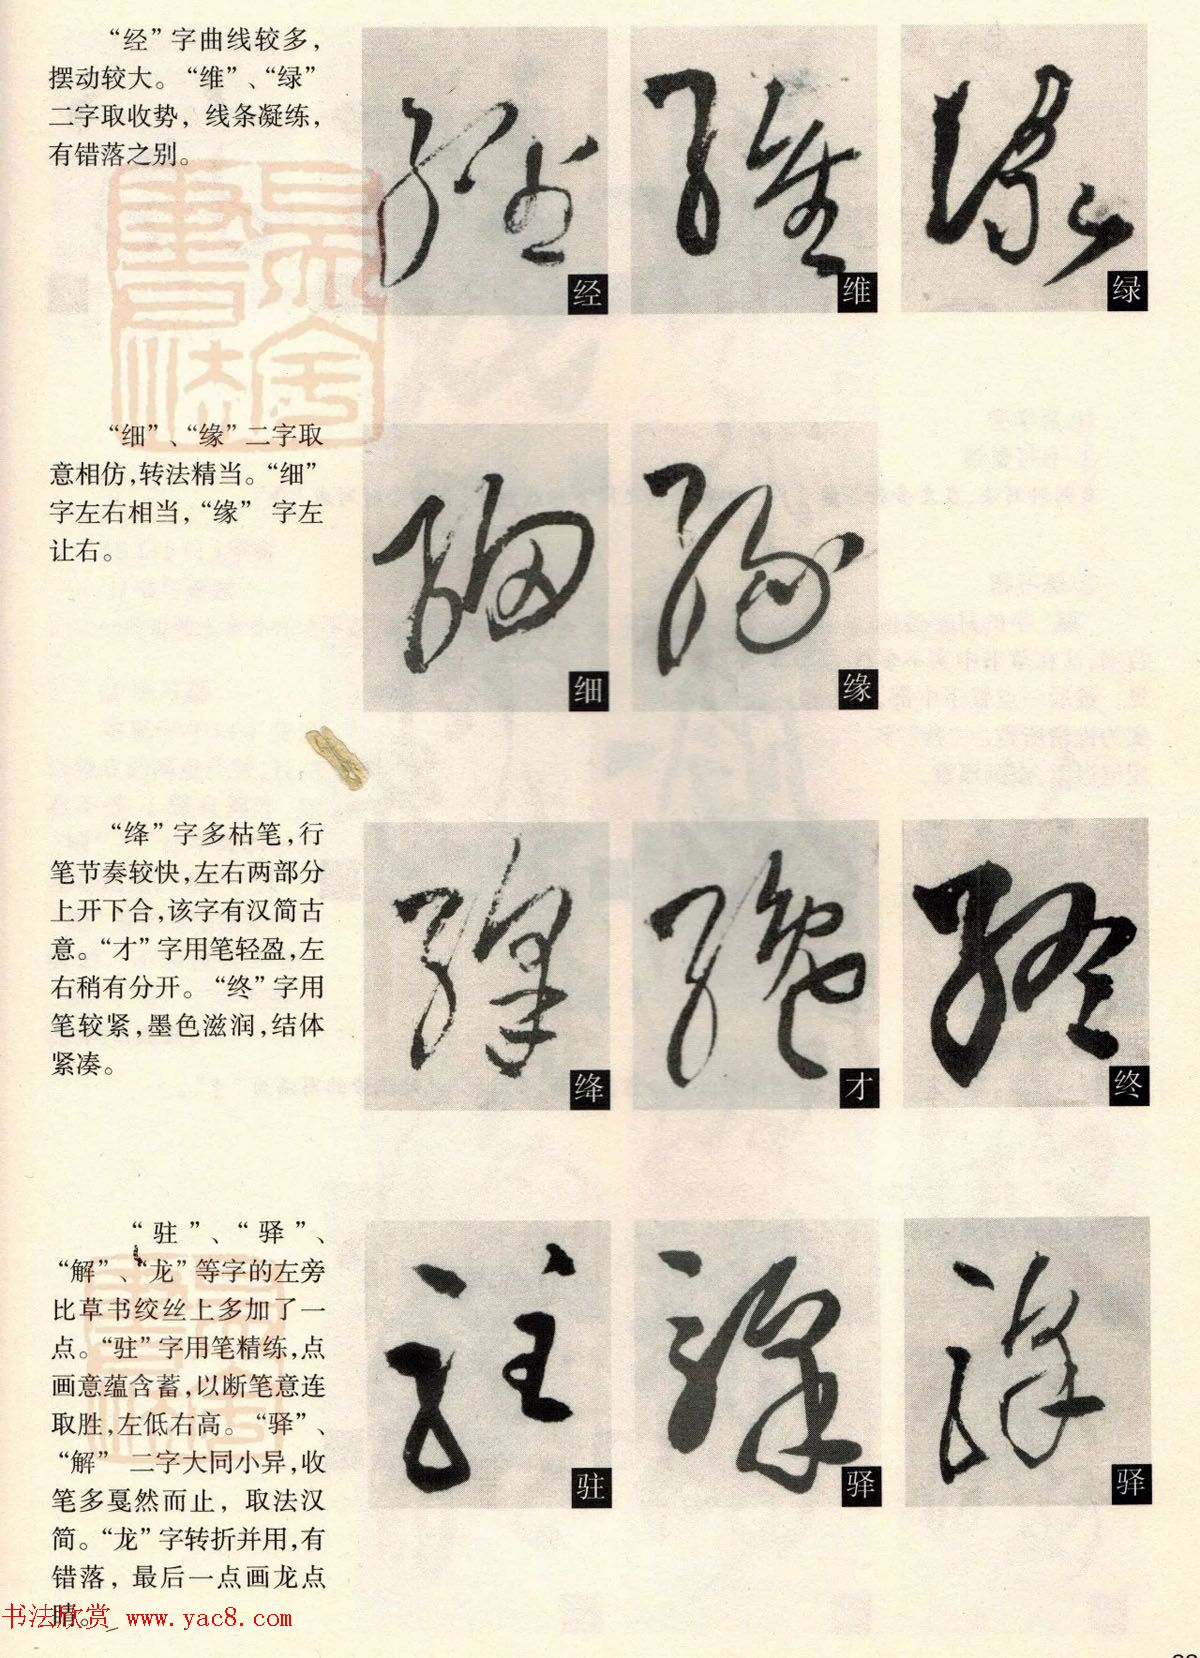 “经”字曲线较多，
摆动较大。“维”、“绿”
二字取收势，线条凝练，
有错落之别。
经
维
绿
“细”、“缘”二字取
意相仿，转法精当。“细”
字左右相当，“缘”字左
让右。
细
缘
“绛”字多枯笔，行
笔节奏较快，左右两部分
上开下合，该字有汉简古
意。“才”字用笔轻盈，左
右稍有分开。“终”字用
笔较紧，墨色滋润，结体
紧凑。
绛
才
终
“驻”、“驿”、
“解”、“龙”等字的左旁
比草书绞丝上多加了一
点。“驻”字用笔精练，点
画意蕴含蓄，以断笔意连
取胜，左低右高。“驿”、
“解”二字大同小异，收
笔多戛然而止，取法汉
简。“龙”字转折并用，有
错落，最后一点画龙点
睛。
驻
驿
驿
书法欣赏 www.yac8.com